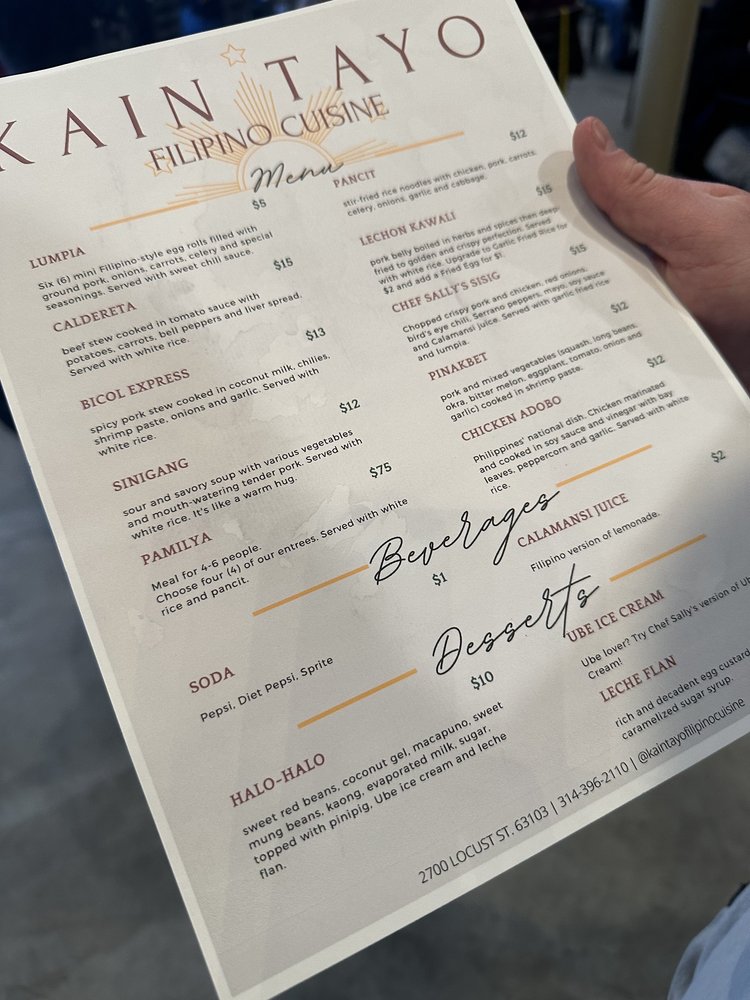 KAIN TAYO
FILIPINO CUISINE
Menu
$5
LUMPIA
Six (6) mini Filipino-style egg rolls filled with
ground pork, onions, carrots, celery and special
seasonings. Served with sweet chili sauce.
$15
CALDERETA
beef stew cooked in tomato sauce with
potatoes, carrots, bell peppers and liver spread.
Served with white rice.
$13
BICOL EXPRESS
spicy pork stew cooked in coconut milk, chilies,
shrimp paste, onions and garlic. Served with
white rice.
$12
SINIGANG
sour and savory soup with various vegetables
and mouth-watering tender pork. Served with
white rice. It's like a warm hug.
$75
PAMILYA
Meal for 4-6 people.
Choose four (4) of our entrees. Served with white
rice and pancit.
$12
PANCIT
stir-fried rice noodles with chicken, pork, carrots,
celery, onions, garlic and cabbage.
$15
LECHON KAWALI
pork belly boiled in herbs and spices then deep-
fried to golden and crispy perfection. Served
with white rice. Upgrade to Garlic Fried Rice for
$2 and add a Fried Egg for $1.
$15
CHEF SALLY'S SISIG
Chopped crispy pork and chicken, red onions,
bird's eye chili, Serrano peppers, mayo, soy sauce
and Calamansi juice. Served with garlic fried rice
and lumpia.
$12
PINAKBET
pork and mixed vegetables (squash, long beans,
okra, bitter melon, eggplant, tomato, onion and
garlic) cooked in shrimp paste.
$12
CHICKEN ADOBO
Philippines' national dish. Chicken marinated
and cooked in soy sauce and vinegar with bay
leaves, peppercorn and garlic. Served with white
rice.
Beverages
$1
SODA
Pepsi, Diet Pepsi, Sprite
$2
CALAMANSI JUICE
Filipino version of lemonade.
Desserts
$10
HALO-HALO
sweet red beans, coconut gel, macapuno, sweet
mung beans, kaong, evaporated milk, sugar,
topped with pinipig, Ube ice cream and leche
flan.
UBE ICE CREAM
Ube lover? Try Chef Sally's version of
Cream!
LECHE FLAN
rich and decadent egg custard
caramelized sugar syrup.
2700 LOCUST ST. 63103 | 314-396-2110 | @kaintayofilipinocuisine